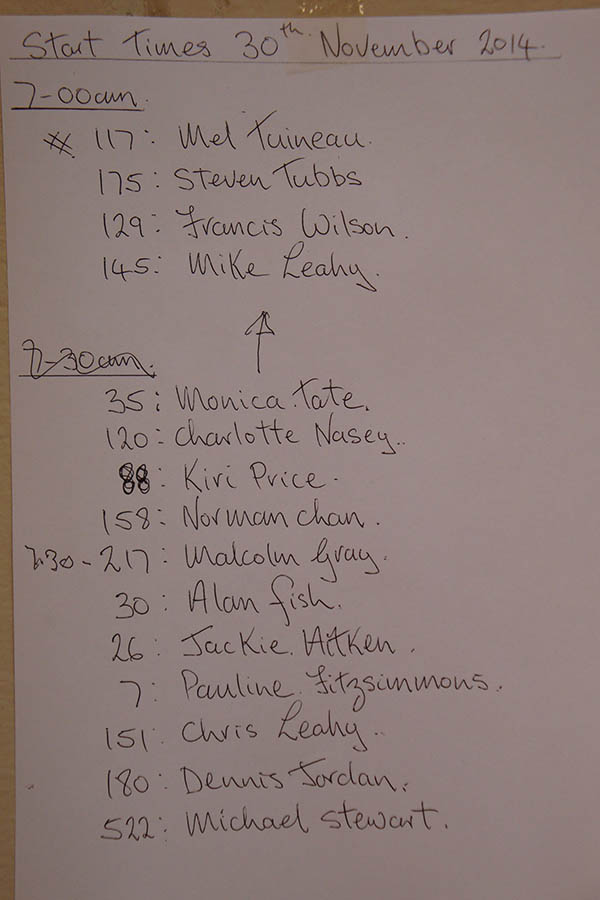 Start Times 30th November 2014.
7-00am.
117: Mel Tuineau.
175: Steven Tubbs
129: Francis Wilson.
145: Mike Leahy.
7-30am.
35: Monica Tate.
120: Charlotte Nasey..
88: Kiri Price.
158: Norman Chan.
7.30 - 217: Malcolm Gray.
30: Alan Fish.
26: Jackie Aitken.
7: Pauline Fitzsimmons.
151: Chris Leahy..
180: Dennis Jordan.
522: Michael Stewart.